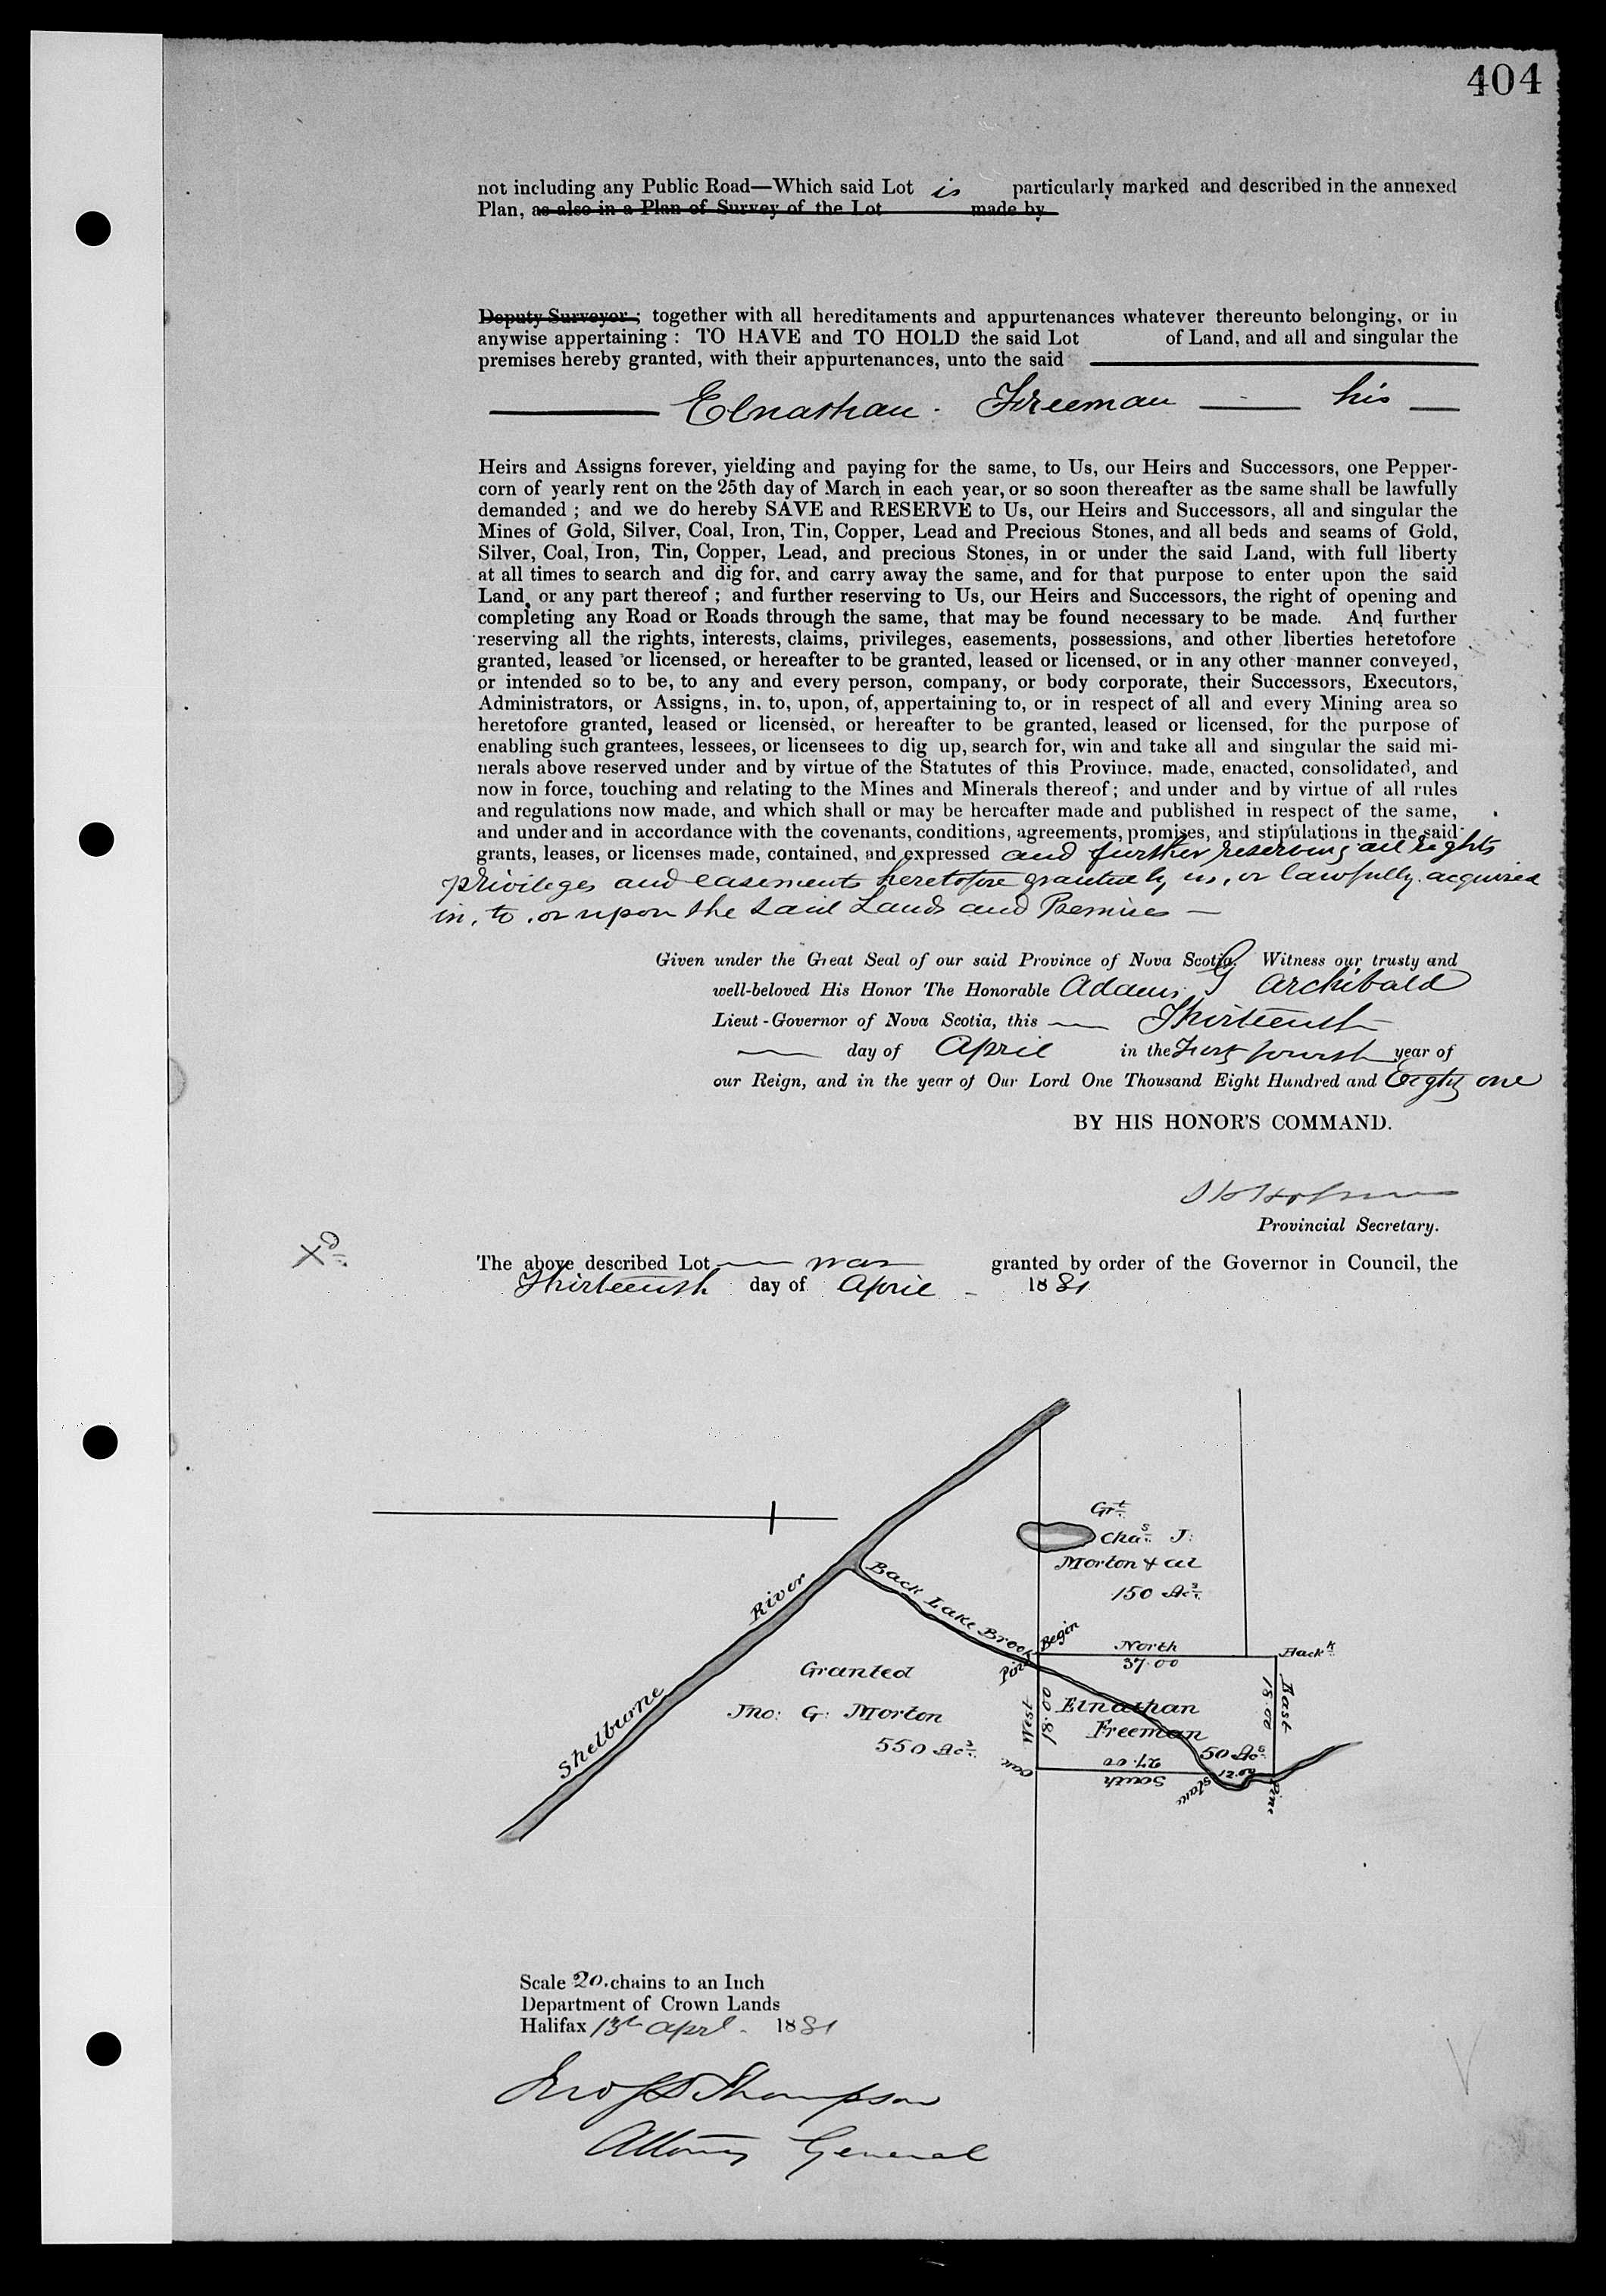 404
not including any Public Road—Which said Lot is particularly marked and described in the annexed
Plan, as also in a Plan of Survey of the Lot made by
Deputy Surveyor ; together with all hereditaments and appurtenances whatever thereunto belonging, or in
anywise appertaining : TO HAVE and TO HOLD the said Lot of Land, and all and singular the
premises hereby granted, with their appurtenances, unto the said
Elnathan Freeman his
Heirs and Assigns forever, yielding and paying for the same, to Us, our Heirs and Successors, one Pepper-
corn of yearly rent on the 25th day of March in each year, or so soon thereafter as the same shall be lawfully
demanded ; and we do hereby SAVE and RESERVE to Us, our Heirs and Successors, all and singular the
Mines of Gold, Silver, Coal, Iron, Tin, Copper, Lead and Precious Stones, and all beds and seams of Gold,
Silver, Coal, Iron, Tin, Copper, Lead, and precious Stones, in or under the said Land, with full liberty
at all times to search and dig for, and carry away the same, and for that purpose to enter upon the said
Land, or any part thereof ; and further reserving to Us, our Heirs and Successors, the right of opening and
completing any Road or Roads through the same, that may be found necessary to be made. And further
reserving all the rights, interests, claims, privileges, easements, possessions, and other liberties heretofore
granted, leased or licensed, or hereafter to be granted, leased or licensed, or in any other manner conveyed,
or intended so to be, to any and every person, company, or body corporate, their Successors, Executors,
Administrators, or Assigns, in, to, upon, of, appertaining to, or in respect of all and every Mining area so
heretofore granted, leased or licensed, or hereafter to be granted, leased or licensed, for the purpose of
enabling such grantees, lessees, or licensees to dig up, search for, win and take all and singular the said mi-
nerals above reserved under and by virtue of the Statutes of this Province, made, enacted, consolidated, and
now in force, touching and relating to the Mines and Minerals thereof ; and under and by virtue of all rules
and regulations now made, and which shall or may be hereafter made and published in respect of the same,
and under and in accordance with the covenants, conditions, agreements, promises, and stipulations in the said
grants, leases, or licenses made, contained, and expressed and further reserving all rights
privileges and easements heretofore granted by us, or lawfully acquired
in, to, or upon the said Lands and Premises —
Given under the Great Seal of our said Province of Nova Scotia. Witness our trusty and
well-beloved His Honor The Honorable Adams G Archibald
Lieut-Governor of Nova Scotia, this Thirteenth
day of April in the Forty fourth year of
our Reign, and in the year of Our Lord One Thousand Eight Hundred and Eighty one
BY HIS HONOR'S COMMAND.
Provincial Secretary.
Xd
The above described Lot was granted by order of the Governor in Council, the
Thirteenth day of April 1881
Grt
Chas J:
Morton & al
150 Acs
Shelburne River
Back Lake Brook
Begin
Pine
North
37.00
Hackk
Granted
Jno: G: Morton
550 Acs
West
18.00
Elnathan
Freeman
50 Acs
East
18.00
27.00
South
12.00
Oak
Stake
Pine
Scale 20 chains to an Inch
Department of Crown Lands
Halifax 13th April 1881
Jno S D Thompson
Attorney General